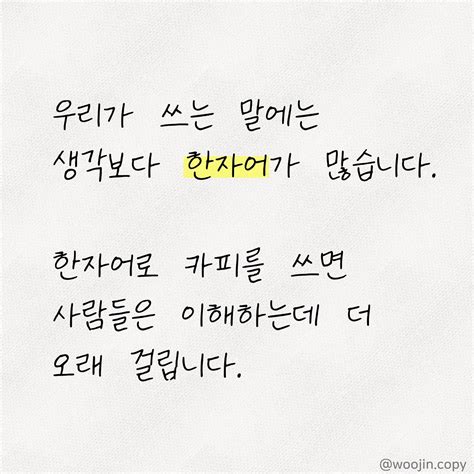 우리가 쓰는 말에는
생각보다 한자어가 많습니다.
한자어로 카피를 쓰면
사람들은 이해하는데 더
오래 걸립니다.
@woojin.copy